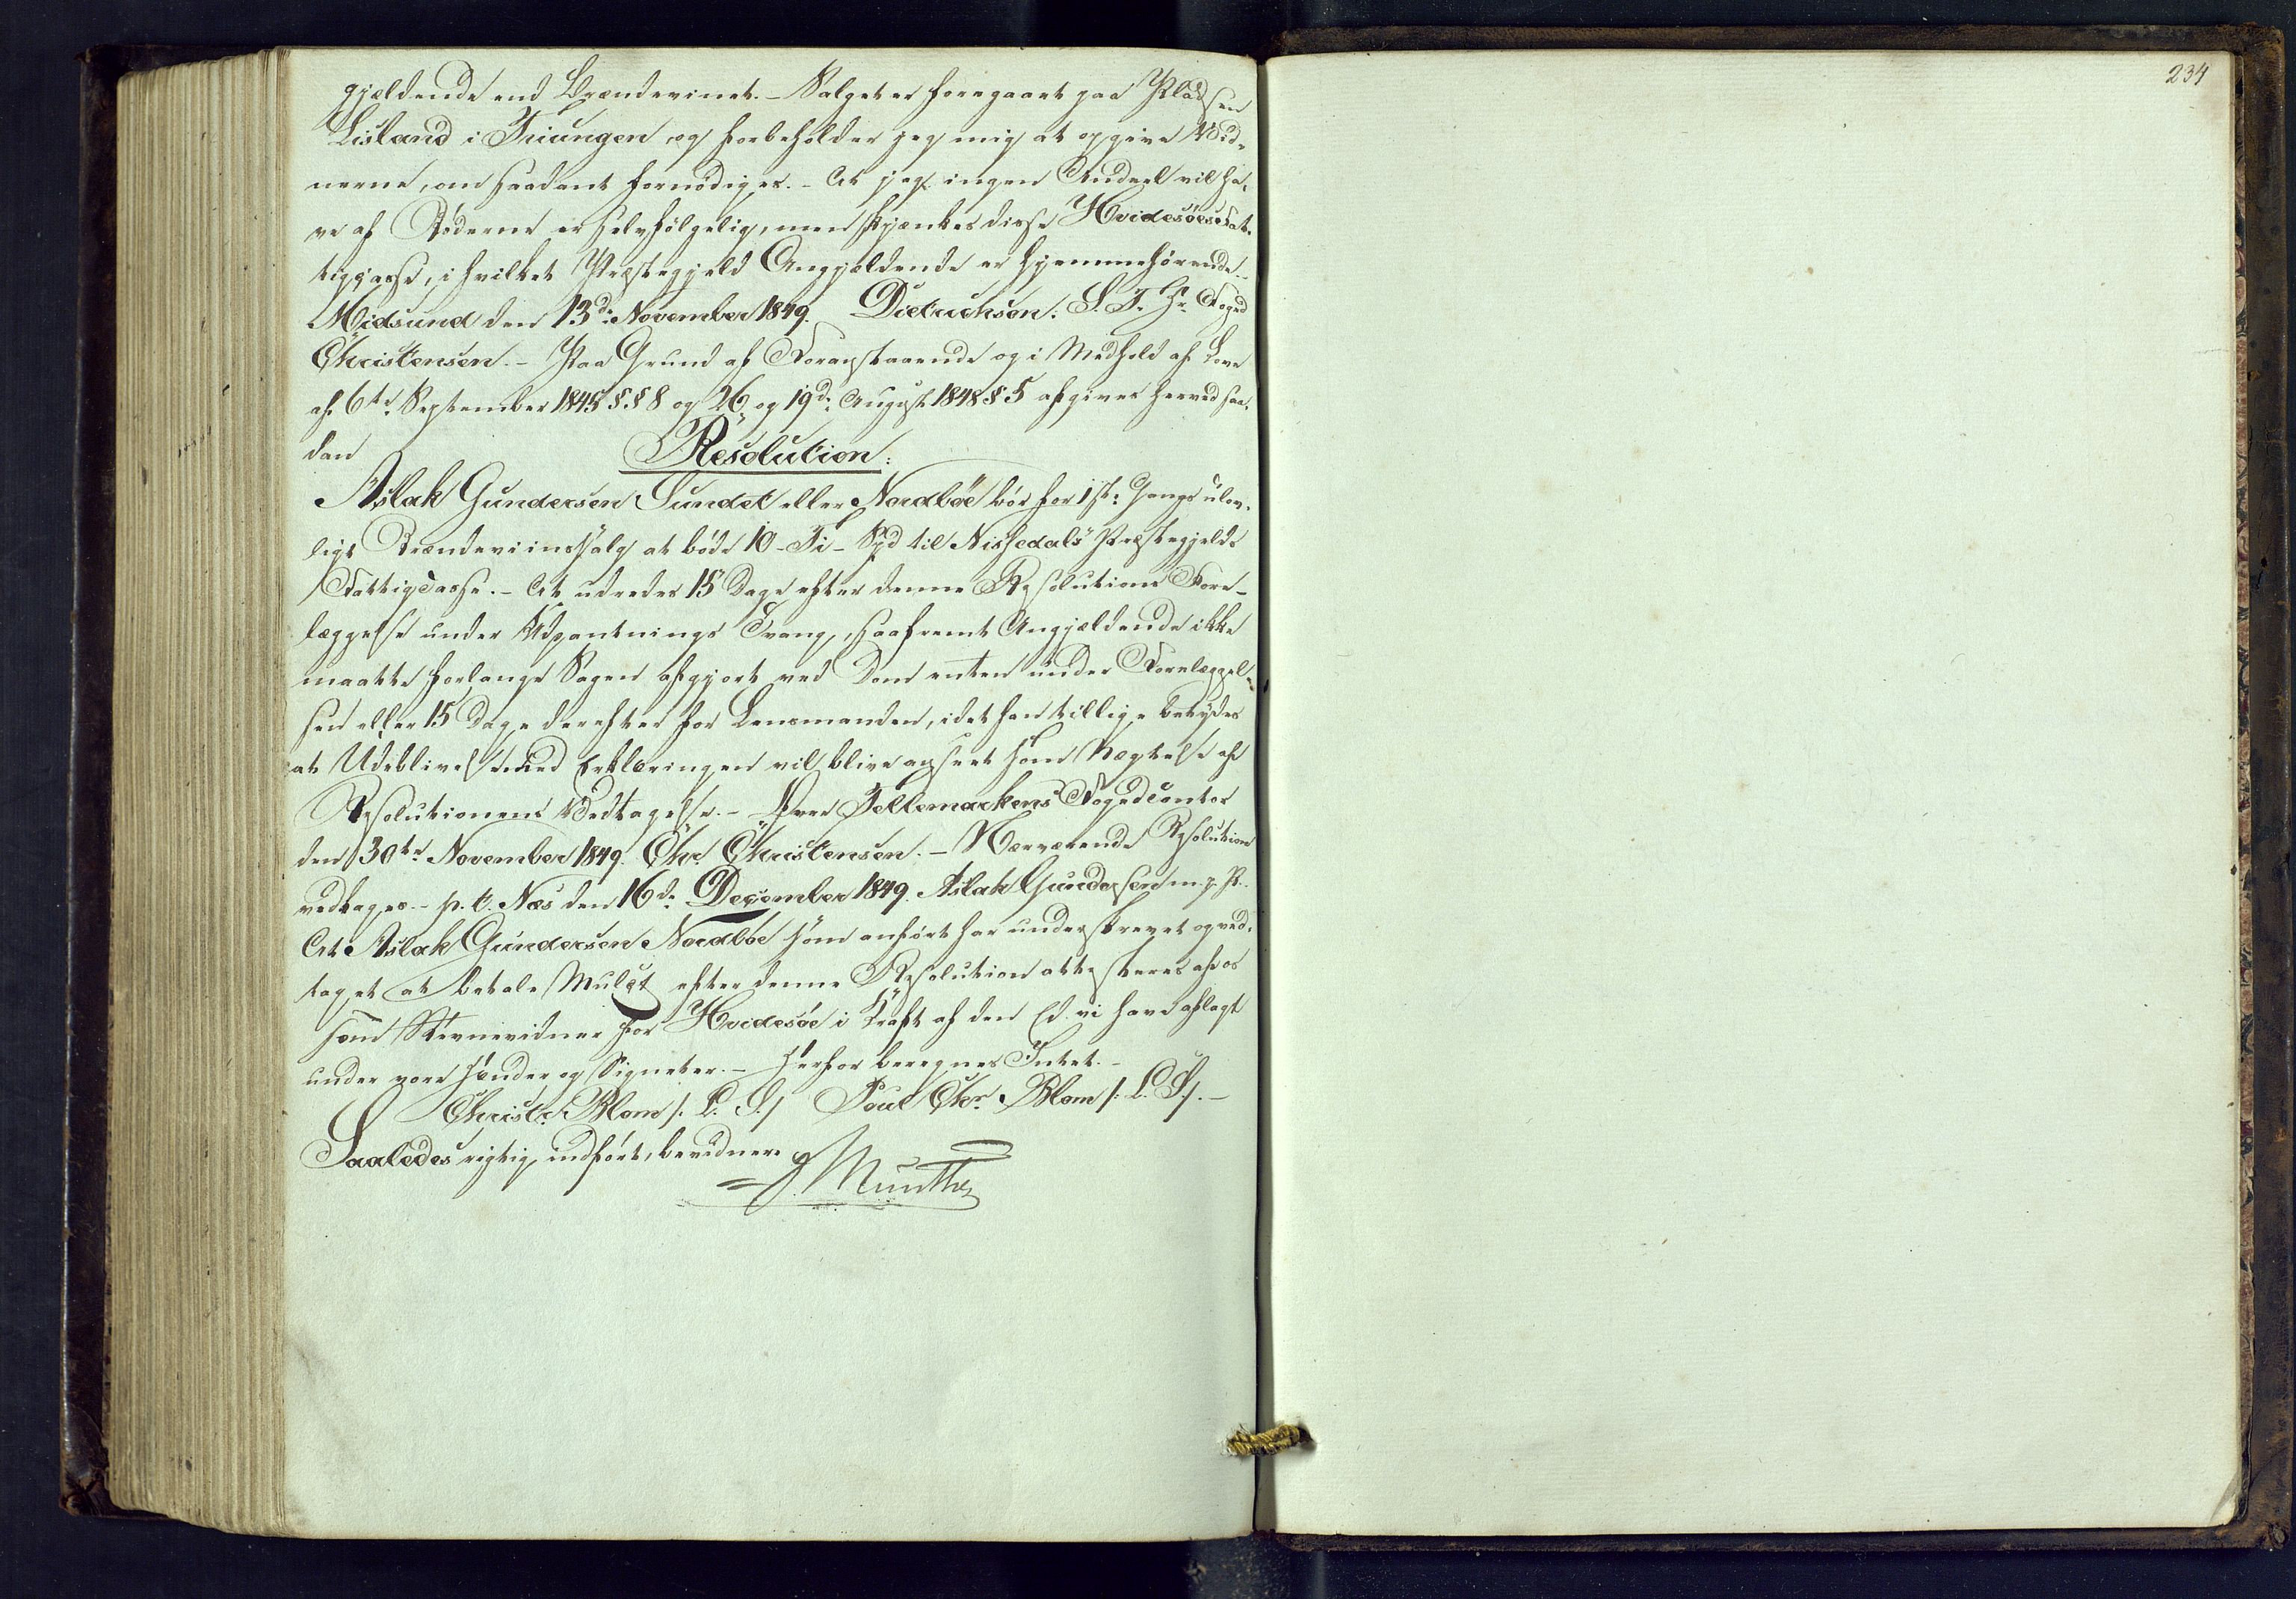 gjældende end Brændevinet. – Salget er foregaaet paa Pladsen
Lisland i Triungen og forbeholder jeg mig at opgive Vid-
nerne, om saadant fornødiges. – At jeg ingen Andeel vil ha-
ve af Bøderne er selvfølgelig, men skjænkes disse Hvidesøes Fat-
tigcasse, i hvilket Præstegjeld Angjældende er hjemmehørende. –
Midsund den 13de November 1849. Dietrichson. S. T. Hr. Foged
Christensen. – Paa Grund af Foranstaaende og i Medhold af Love
af 6te September 1845 §§ 8 og 26 og 19de August 1848 § 5 afgives herved saa-
dan
Resolution:
Aslak Gundersen Sundet eller Nordbøe bør for 1ste Gangs ulov-
ligt Brændeviinssalg at bøde 10 – Ti – Spd til Nissedals Præstegjelds
Fattigcasse. – At udredes 15 Dage efter denne Resolutions Fore-
læggelse under Udpantnings Tvang, saafremt Angjældende ikke
maatte forlange Sagen afgjort ved Dom enten under Forelæggel-
sen eller 15 Dage derefter for Lensmanden, idet han tillige betydes
at Udeblivelse med Erklæringen vil blive anseet som Nægtelse af
Resolutionens Vedtagelse. – Øvre Tellemarkens Fogedcontor
den 30te November 1849. Chr. Christensen. – Nærværende Resolution
vedtages. – p. t. Næs den 16de December 1849. Aslak Gundersen m. p. P.
At Aslak Gundersen Nordbøe som anført har underskrevet og ved-
taget at betale Mulct efter denne Resolution attesteres af os
som Stevnevidner for Hvidesøe i Kraft af den Ed vi have aflagt
under vore Hænder og Signeter. – Herfor beregnes Intet. –
Christ. Blom /: L. S. :/ Poul Chr. Blom /: L. S. :/. –
Saaledes rigtig indført, bevidner
J. Munthe
234